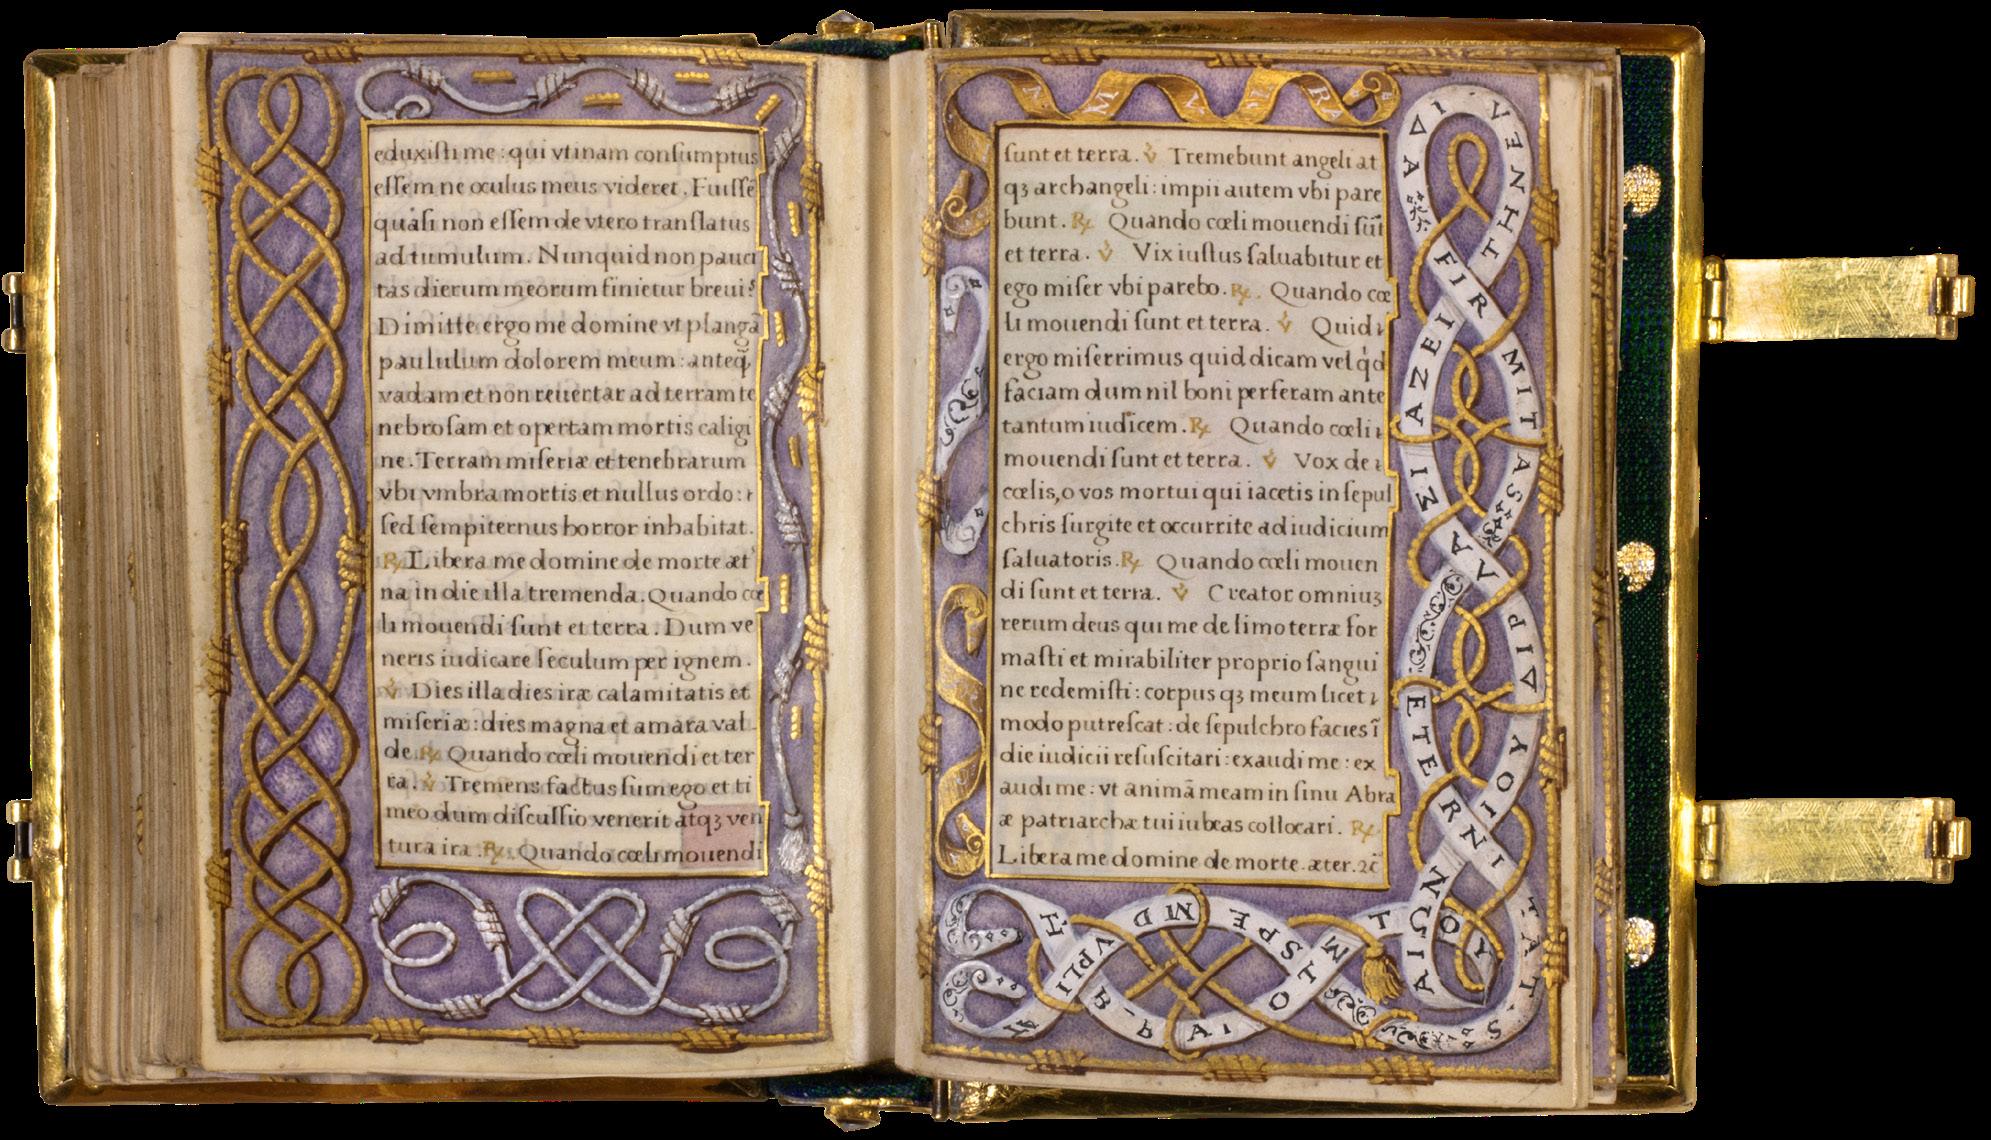 eduxisti me : qui vtinam consumptus
essem ne oculus meus videret . Fuissē
quasi non essem de vtero translatus
ad tumulum . Nunquid non pauci
tas dierum meorum finietur breui?
Dimitte ergo me domine vt plangā
paululum dolorem meum : anteq̄
vadam et non reuertar ad terram te
nebrosam et opertam mortis caligi
ne . Terram miseriæ et tenebrarum
vbi vmbra mortis et nullus ordo :
sed sempiternus horror inhabitat .
℟ Libera me domine de morte æt'
na in die illa tremenda . Quando cœ
li mouendi sunt et terra . Dum ve
neris iudicare seculum per ignem .
℣ Dies illa dies iræ calamitatis et
miseriæ : dies magna et amara val
de . ℟ Quando cœli mouendi et ter
ra . ℣ Tremens factus sum ego et ti
meo dum discussio venerit atqꝫ ven
tura ira . ℟ . Quando cœli mouendi
sunt et terra . ℣ Tremebunt angeli at
qꝫ archangeli : impii autem vbi pare
bunt . ℟ Quando cœli mouendi sūt
et terra . ℣ Vix iustus saluabitur et
ego miser vbi parebo . ℟ . Quando cœ
li mouendi sunt et terra . ℣ Quid
ergo miserrimus quid dicam vel qͥd
faciam dum nil boni perferam ante
tantum iudicem . ℟ Quando cœli
mouendi sunt et terra . ℣ Vox de
cœlis, o vos mortui qui iacetis in sepul
chris surgite et occurrite ad iudicium
saluatoris . ℟ Quando cœli mouen
di sunt et terra . ℣ Creator omniuꝫ
rerum deus qui me de limo terræ for
masti et mirabiliter proprio sangui
ne redemisti : corpus qꝫ meum licet
modo putrescat : de sepulchro facies ī
die iudicii resuscitari : exaudi me : ex
audi me : vt animā meam in sinu Abra
æ patriarchæ tui iubeas collocari . ℟
Libera me domine de morte . æter . ⁊c̄
FIRMITAS